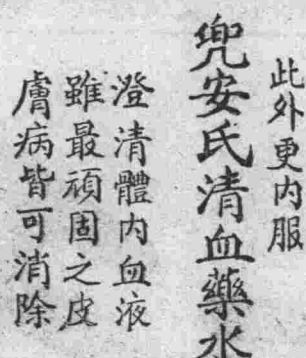 此外更內服
兜安氏清血藥水
澄清體內血液
雖最頑固之皮
膚病皆可消除